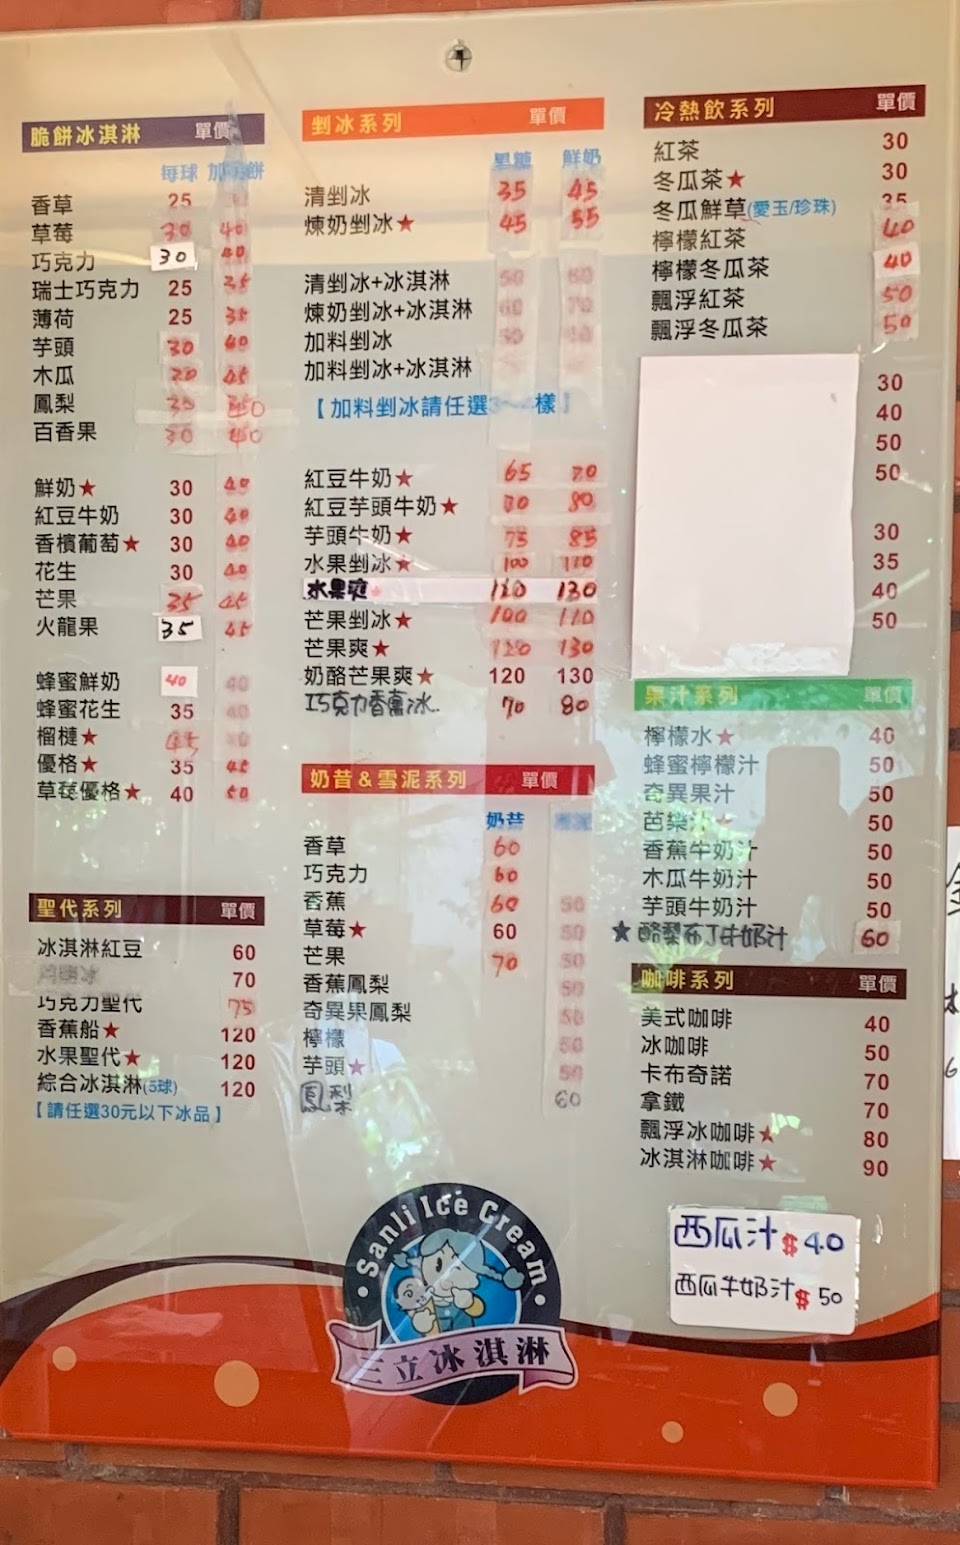 脆餅冰淇淋 單價
每球
香草 25
草莓 30 40
巧克力 30 40
瑞士巧克力 25 35
薄荷 25
芋頭 30 40
木瓜 45
鳳梨 35
百香果 30 40
鮮奶★ 30 40
紅豆牛奶 30 40
香檳葡萄★ 30 40
花生 30 40
芒果 35 45
火龍果 35 45
蜂蜜鮮奶 40 40
蜂蜜花生 35 40
榴槤★ 45
優格★ 35 45
草莓優格★ 40 50
聖代系列 單價
冰淇淋紅豆 60
70
巧克力聖代 75
香蕉船★ 120
水果聖代★ 120
綜合冰淇淋(5球) 120
【請任選30元以下冰品】
剉冰系列 單價
黑糖 鮮奶
清剉冰 35 45
煉奶剉冰★ 45 55
清剉冰+冰淇淋 50 60
煉奶剉冰+冰淇淋 60 70
加料剉冰
加料剉冰+冰淇淋
【加料剉冰請任選 樣】
紅豆牛奶★ 65 70
紅豆芋頭牛奶★ 70 80
芋頭牛奶★ 75 85
水果剉冰★ 100 110
水果爽★ 130
芒果剉冰★ 100 110
芒果爽★ 120 130
奶酪芒果爽★ 120 130
巧克力香蕉冰 70 80
奶昔&雪泥系列 單價
奶昔
香草 60
巧克力 60
香蕉 60 50
草莓★ 60 50
芒果 70 50
香蕉鳳梨 50
奇異果鳳梨 50
檸檬 50
芋頭★ 50
鳳梨 60
冷熱飲系列 單價
紅茶 30
冬瓜茶★ 30
冬瓜鮮草(愛玉/珍珠) 35
檸檬紅茶 40
檸檬冬瓜茶 40
飄浮紅茶 50
飄浮冬瓜茶 50
30
40
50
50
30
35
40
50
果汁系列 單價
檸檬水★ 40
蜂蜜檸檬汁 50
奇異果汁 50
芭樂汁★ 50
香蕉牛奶汁 50
木瓜牛奶汁 50
芋頭牛奶汁 50
★酪梨布丁牛奶汁 60
咖啡系列 單價
美式咖啡 40
冰咖啡 50
卡布奇諾 70
拿鐵 70
飄浮冰咖啡★ 80
冰淇淋咖啡★ 90
西瓜汁$40
西瓜牛奶汁$50
Sanli Ice Cream
三立冰淇淋